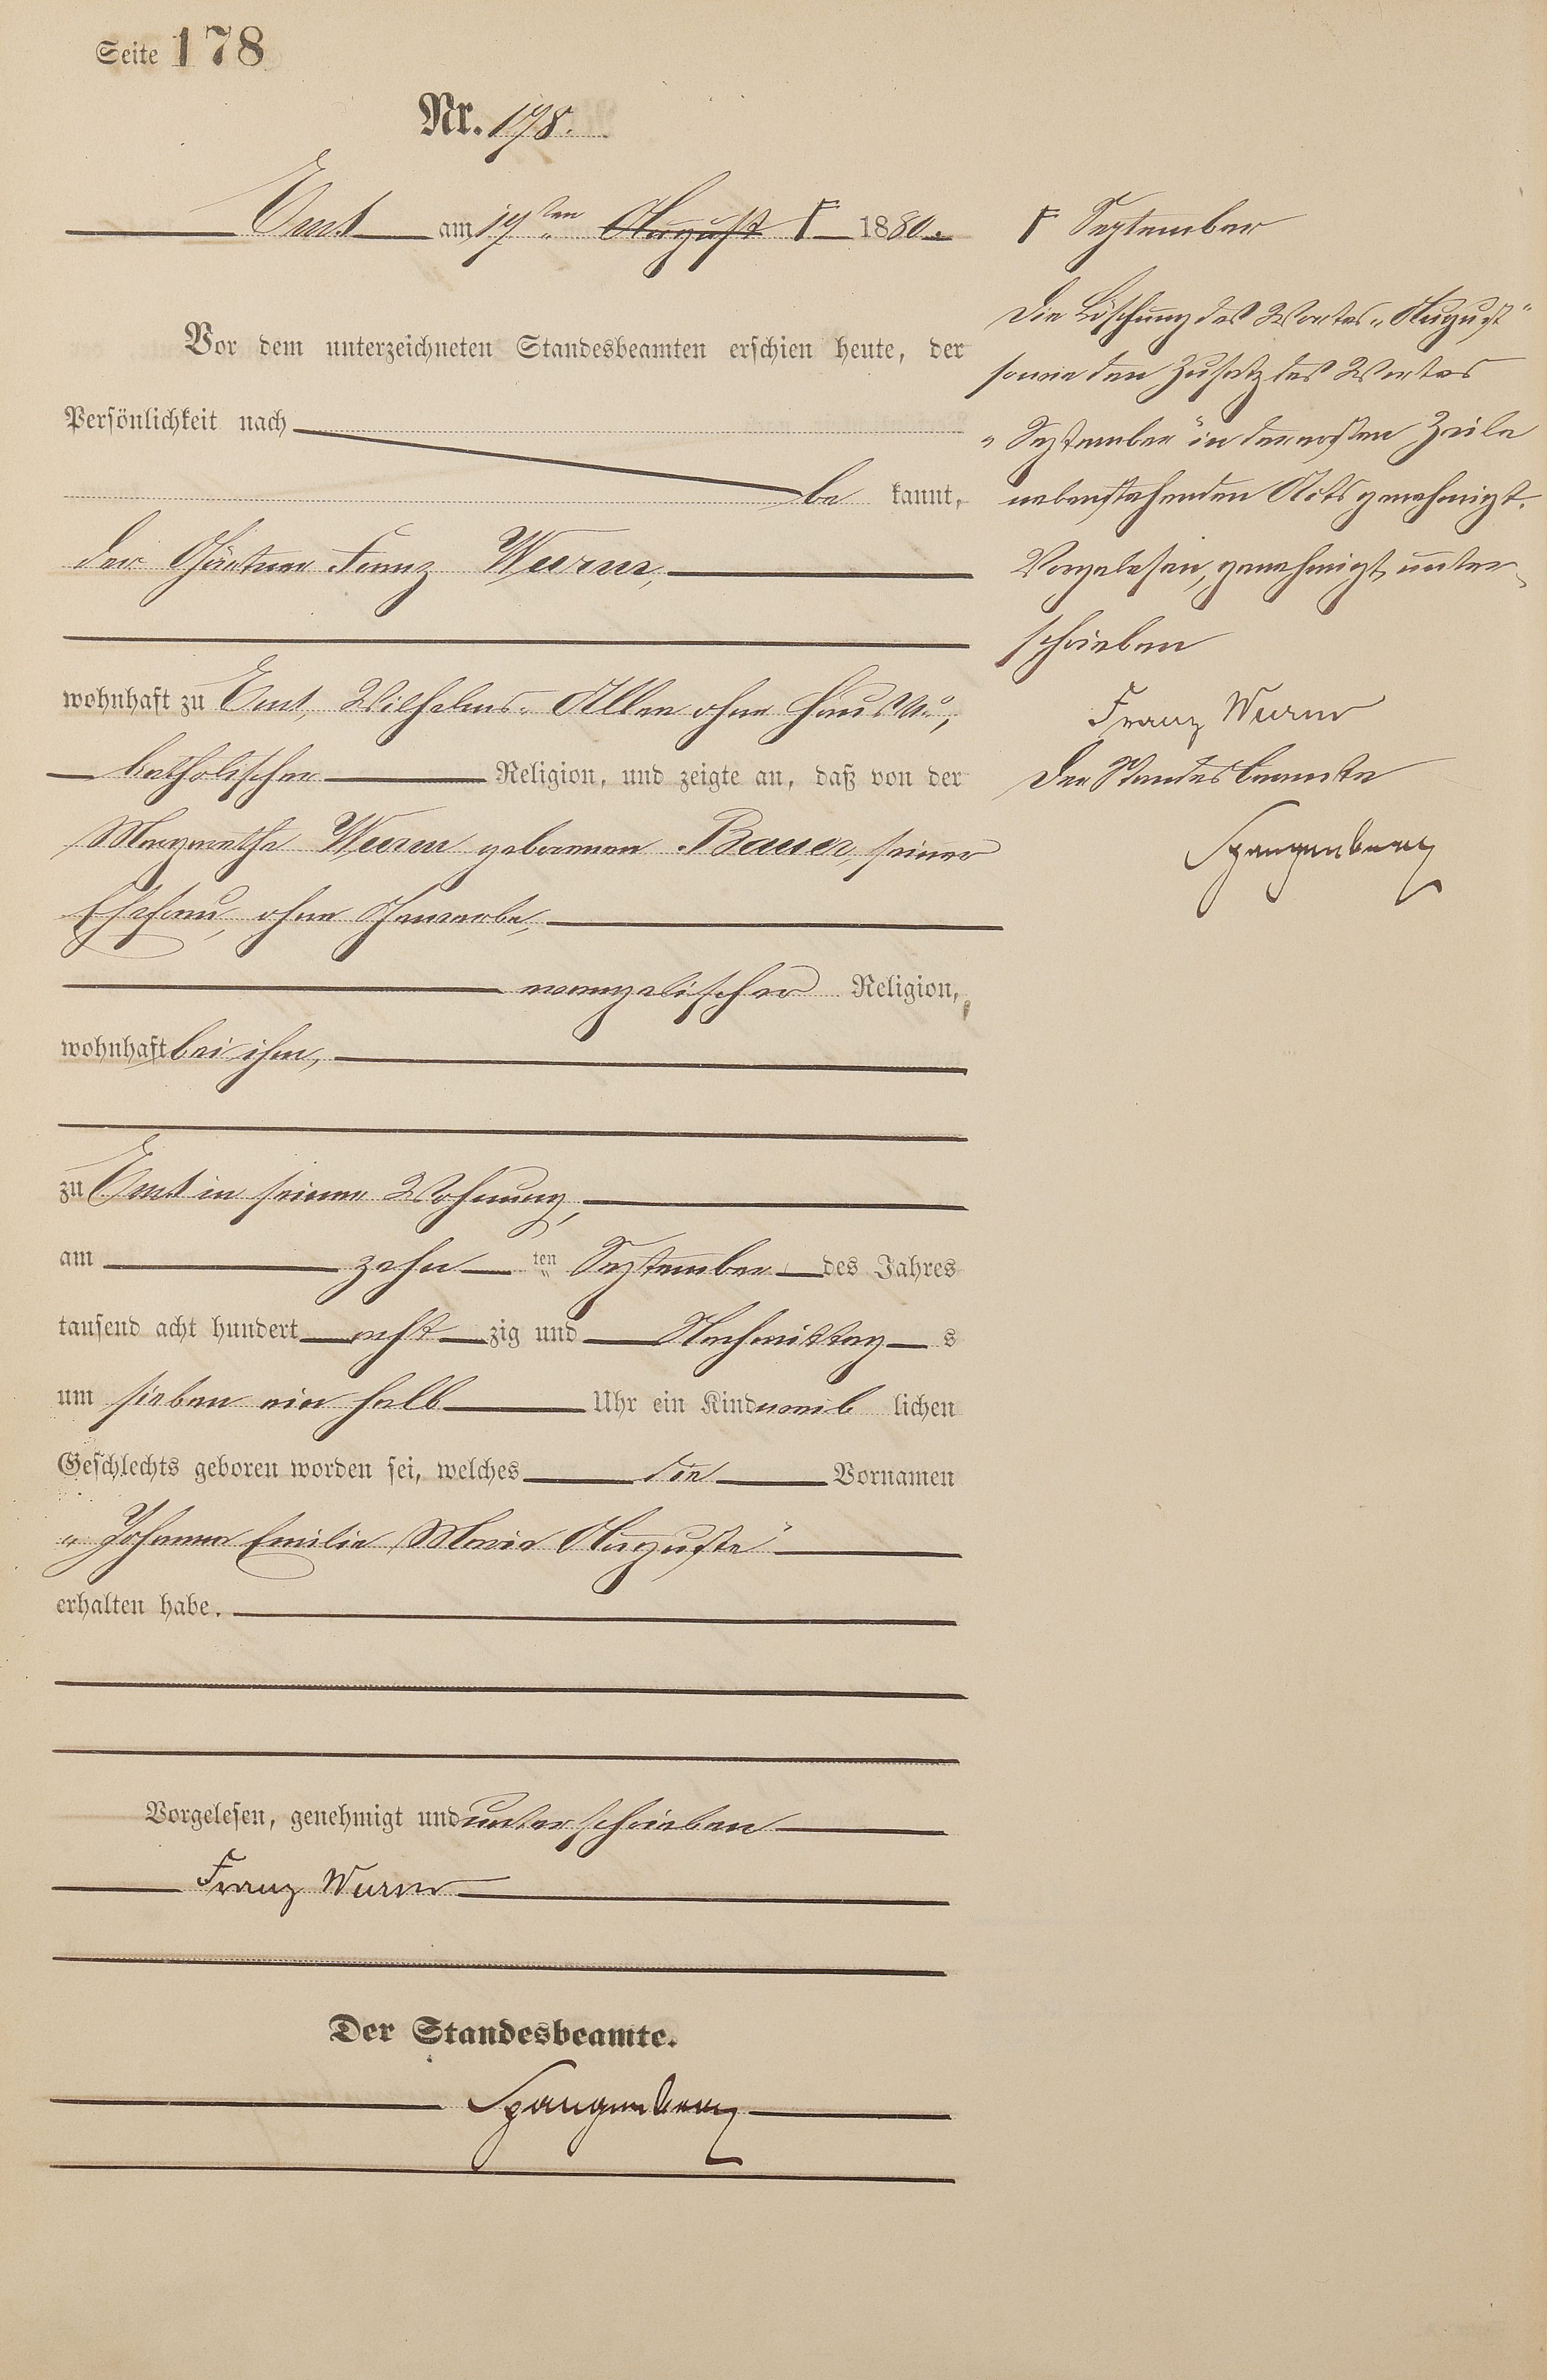 Seite 178
Nr. 178.
Ems am 17ten August Ꞙ 1880.
Vor dem unterzeichneten Standesbeamten erschien heute, der
Persönlichkeit nach
be kannt,
der Gärtner Franz Wurm,
wohnhaft zu Ems, Wilhelms-Allee ohne Haus No,
katholischer Religion, und zeigte an, daß von der
Margarethe Wurm geborenen Bauer, seiner
Ehefrau, ohne Gewerbe,
evangelischer Religion,
wohnhaft bei ihm,
zu Ems in seiner Wohnung,
am zehn ten September des Jahres
tausend acht hundert acht zig und Nachmittag s
um sieben ein halb Uhr ein Kind weib lichen
Geschlechts geboren worden sei, welches die Vornamen
„Johanna Emilie Maria Auguste“
erhalten habe.
Vorgelesen, genehmigt und unterschrieben
Franz Wurm
Der Standesbeamte.
Spangenberg
Ꞙ September
Die Löschung des Wortes „August“
sowie den Zusatz des Wortes
„September“ in der ersten Zeile
nebenstehenden Akts genehmigt.
Vorgelesen, genehmigt, unter-
schrieben
Franz Wurm
Der Standesbeamte
Spangenberg